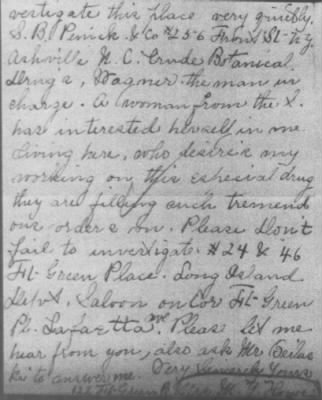 vestigate this place very quickly.
S. B. Penick & Co #256 Front St. N.Y.
Ashville N. C. Crude Botanical
Drugs, Wagner the man in
charge. A woman from the S.
has interested herself in me
living here, who desires my
working on this especial drug
they are filling such tremend
ous orders on. Please Don't
fail to investigate #24 & 46
Ft. Green Place. Long Island
Saloon on Cor Ft. Green
Pl. Lafaetta Ave. Please let me
hear from you, also ask Mr.
to answer me. Very Sincerely Yours
Ft. Green